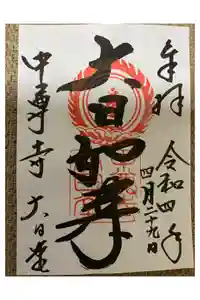 奉拝
令和四年
四月二十九日
大日如来
中尊寺 大日堂